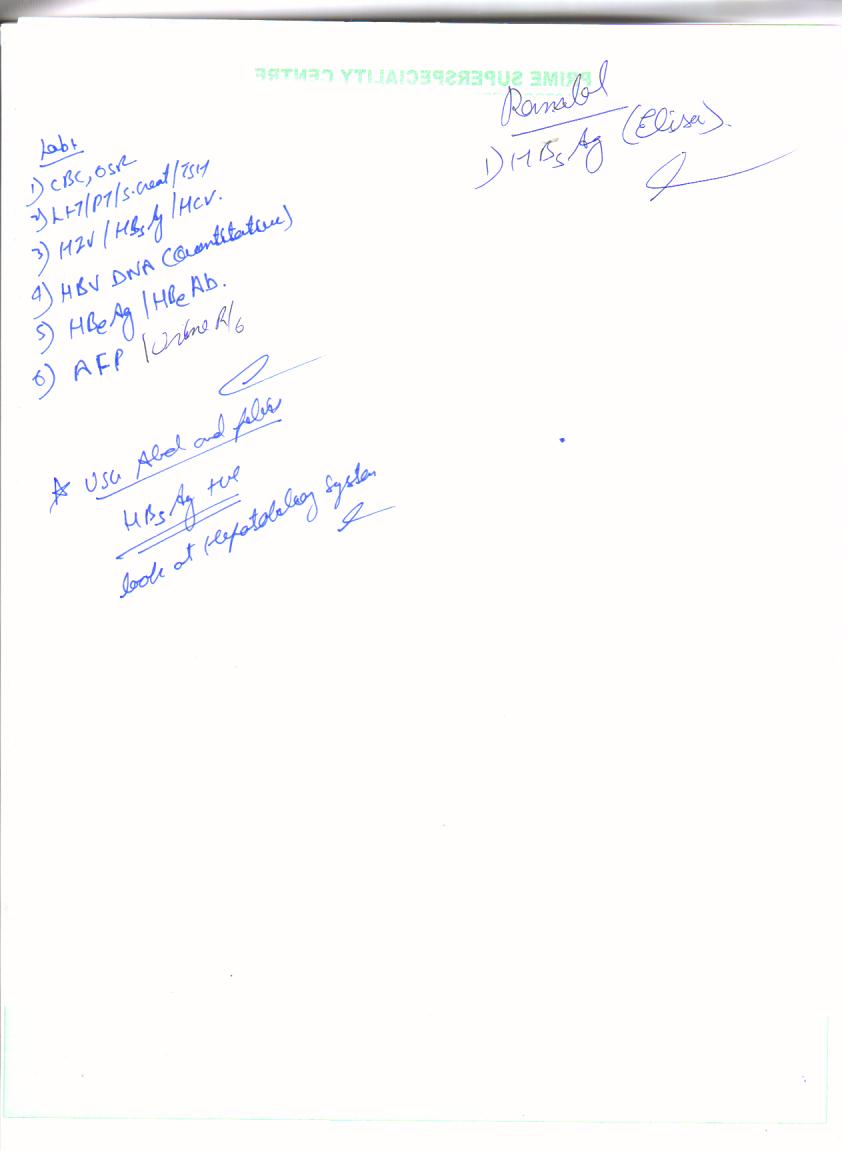 PRIME SUPERSPECIALITY CENTRE
Labs
1) CBC, ESR
2) LFT/PT/S.creat/TSH
3) HIV/HBsAg/HCV.
4) HBV DNA (Quantitative)
5) HBeAg/HBeAb.
6) AFP /Urine R/
USG Abd and pelvis
HBsAg +ve
look at Hepatobiliary system
1) HBsAg (Elisa).